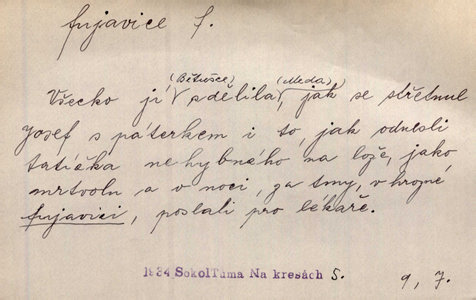 fujavice f.
(Bětušce) (Meda),
Všecko jí sdělila, jak se střetnul
Josef s páterkem i to, jak odnesli
tatíčka nehybného na lože, jako
mrtvolu a v noci, za tmy, v hrozné
fujavici, poslali pro lékaře.
1934 SokolTůma Na kresách 5. 9, 7.